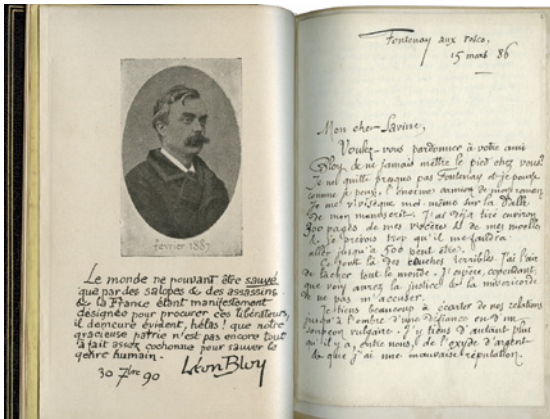 février 1887
Le monde ne pouvant être sauvé
que par des salopes & des assassins
& la France étant manifestement
désignée pour procurer ces libérateurs,
il demeure évident, hélas! que notre
gracieuse patrie n'est pas encore tout
à fait assez cochonne pour sauver le
genre humain.
30 7bre 90 Léon Bloy
Fontenay aux
15 mars 86
Mon cher Lavine,
Voulez-vous pardonner à votre ami
Bloy de ne jamais mettre le pied chez vous?
Je ne quitte presque pas Fontenay et je pousse
comme je peux, l'énorme de mon roman
Je me vivisèque moi-même sur la dalle
de mon manuscrit. J'ai déjà tiré environ
300 pages de mes viscères & de mes moelles
& je prévois trop qu'il me faudra
aller jusqu'à 500 peut être.
Ce sont là des couches terribles. J'ai l'air
de lâcher tout le monde. J'espère, cependant,
que vous aurez la justice & la miséricorde
de ne pas m'accuser.
Je tiens beaucoup à écarter de nos relations
jusqu'à l'ombre d'une défiance ou d'un
soupçon vulgaire. J'y tiens d'autant plus
qu'il y a, entre nous, de l'oxyde d'argent
& que j'ai une mauvaise réputation.